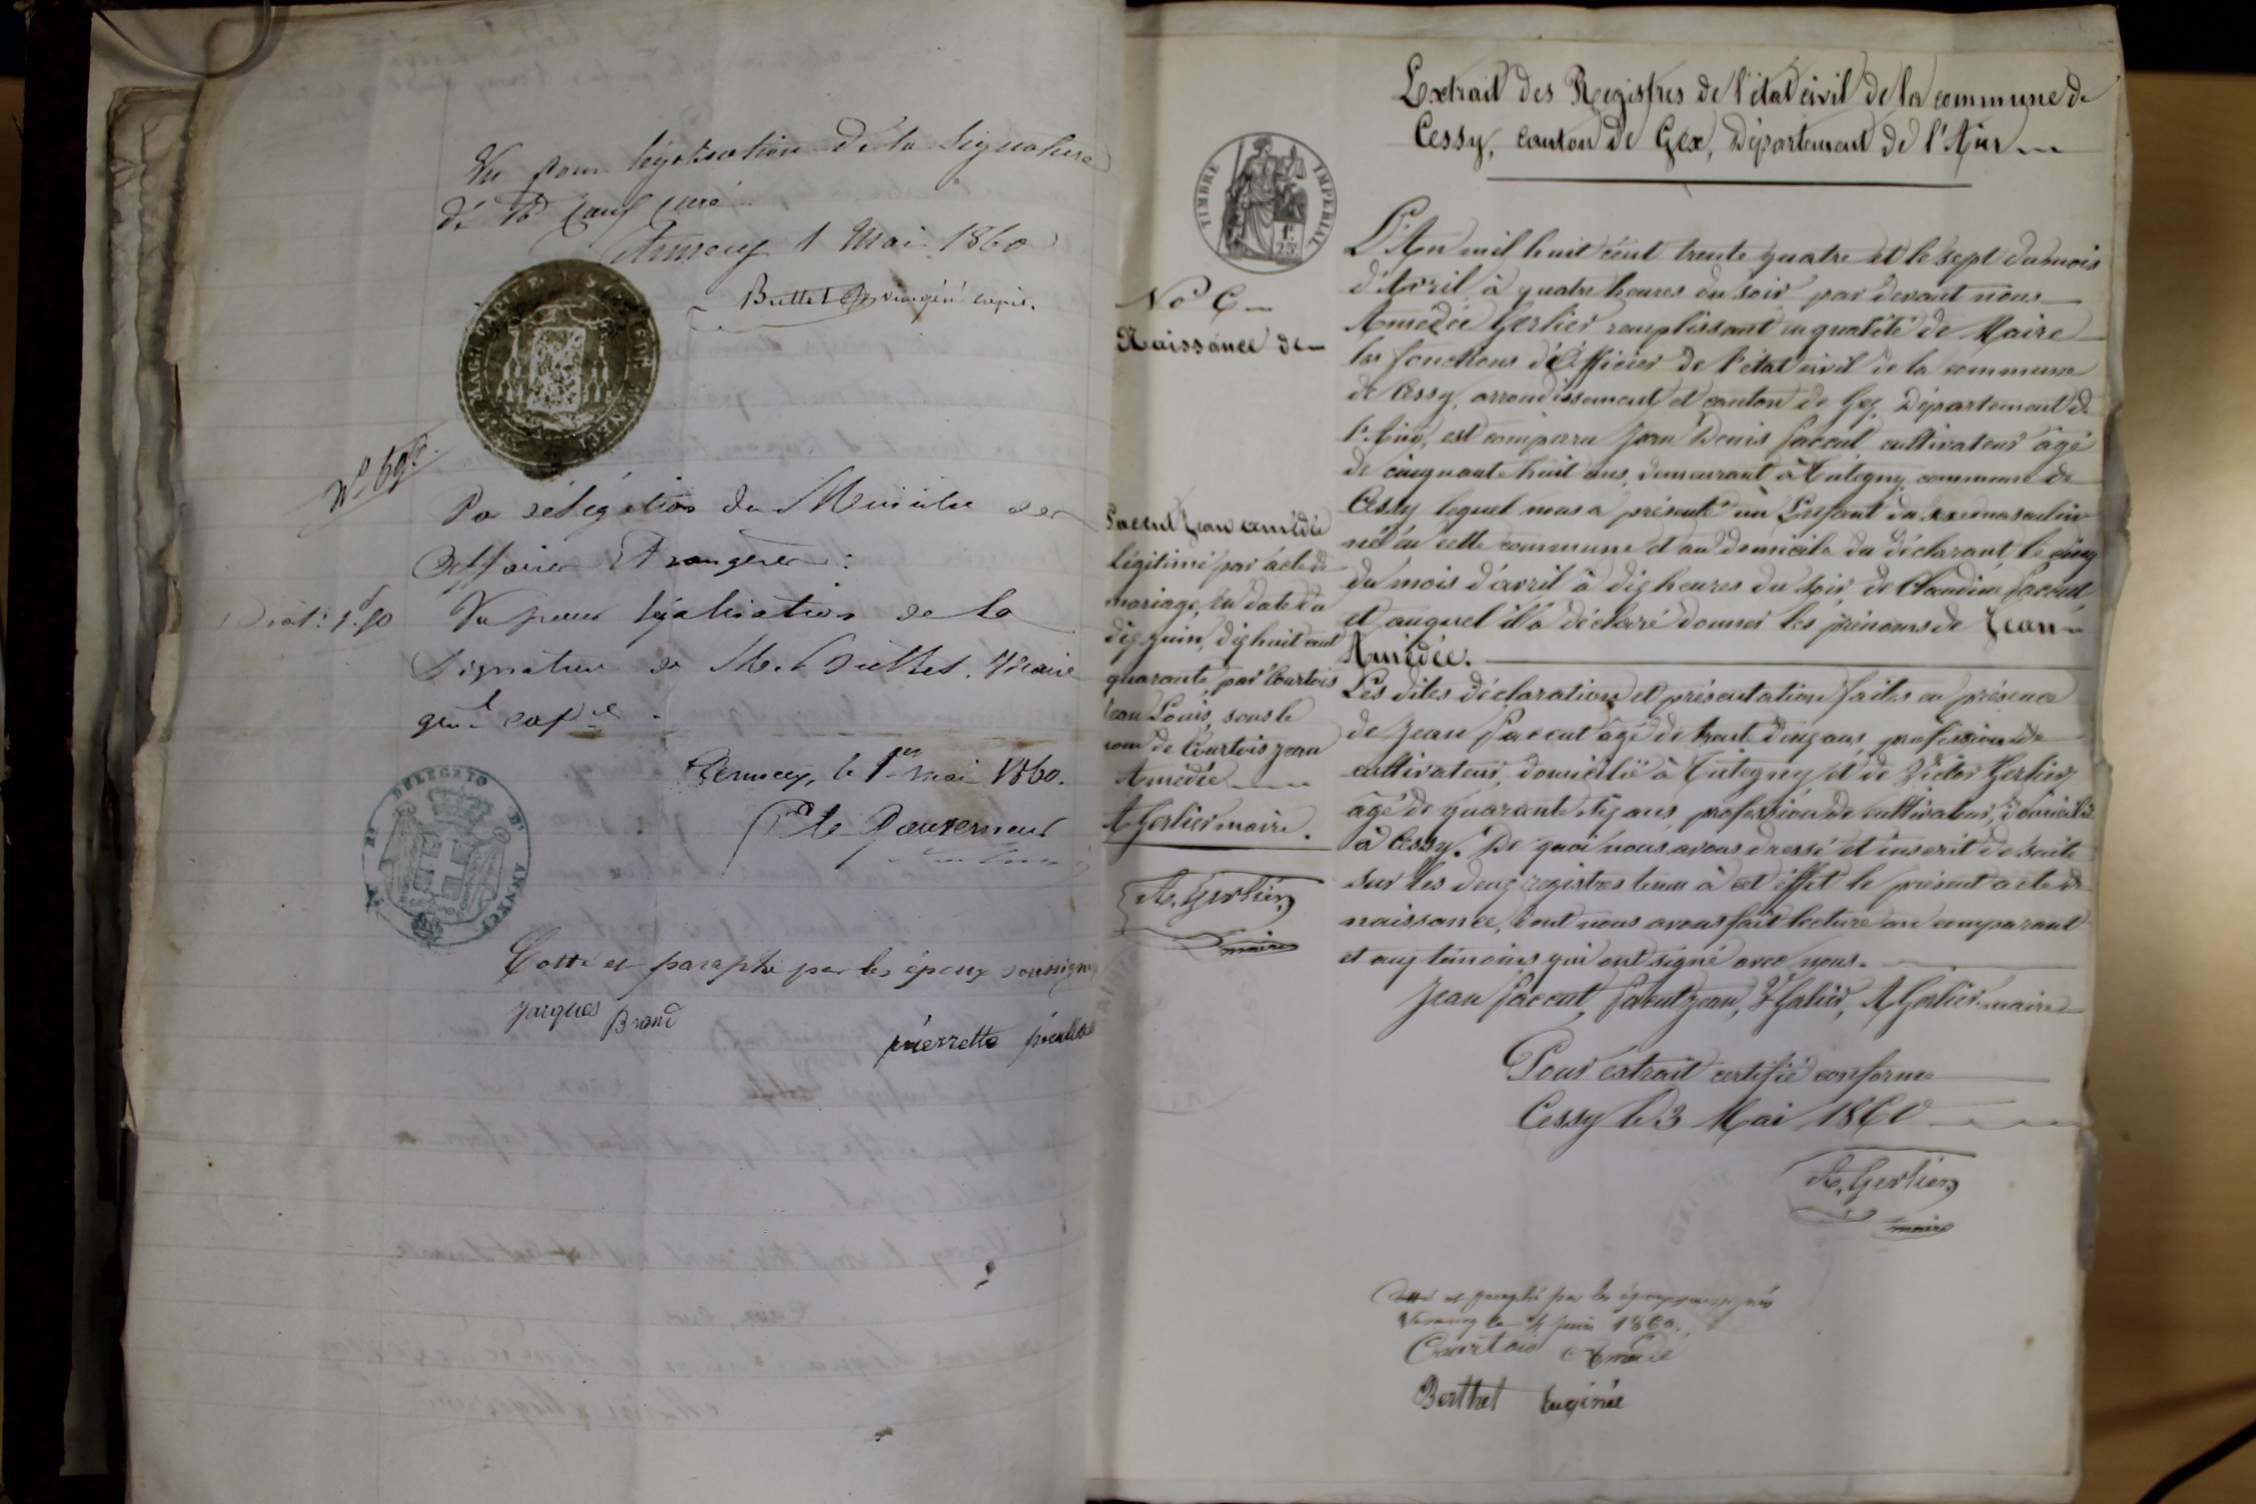 Vu pour légalisation de la Signature
de Rd curé
Annecy 1 Mai 1860
Buttet vic. gén. capit.
No 69
Par délégation du Ministre des
Affaires Etrangères :
Droit : 1.f 50
Vu pour légalisation de la
Signature de Mr. Buttet. Vicaire
gén.l cap.re
Annecy, le 1er mai 1860.
Pr le Gouverneur
DELEGATO
ANNECY
Cotté et paraphé par les époux soussignés
Jacques Brand
pierrette
Extrait des Registres de l'état civil de la commune de
Cessy, canton de Gex, Département de l'Ain
TIMBRE IMPERIAL
1f.
25
No 6
Naissance de
Jacout Jean amédée
légitimé par acte de
mariage, en date du
dix juin, dix huit cent
quarante par Courtois
Jean Louis, sous le
nom de Courtois Jean
Amédée
A Gerlier maire.
A. Gerlier
maire
L'An mil huit cent trente quatre et le sept du mois
d'Avril à quatre heures du soir par devant nous
Amédée Gerlier remplissant en qualité de Maire
les fonctions d'Officier de l'état civil de la commune
de Cessy, arrondissement et canton de Gex, Département de
l'Ain, est comparu Jean Denis Jacout cultivateur âgé
de cinquante huit ans, demeurant à Tutegny commune de
Cessy lequel nous a présenté un Enfant du sexe masculin
né en cette commune et au domicile du déclarant, le cinq
du mois d'avril à dix heures du soir de Claudine Jacout
et auquel il a déclaré donner les prénoms de Jean
Amédée.
Les dites déclaration et présentation faites en présence
de Jean Jacout âgé de trente deux ans, profession de
cultivateur, domicilié à Tutegny et de Victor Gerlier
âgé de quarante six ans profession de cultivateur, domicilié
à Cessy. De quoi nous avons dressé et inscrit de suite
sur les deux registres tenus à cet effet le présent acte de
naissance, dont nous avons fait lecture au comparant
et aux témoins qui ont signé avec nous.
Jean Jacout, Jacout Jean, Vr Gerlier, A Gerlier maire
Pour extrait certifié conforme
Cessy le 3 Mai 1860
A. Gerlier
maire
Cotté et paraphé par les époux soussignés
le 4 juin 1860.
Courtois Amédé
Berthet Eugénie